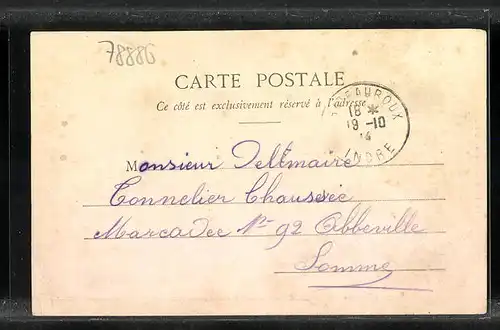 78886
CARTE POSTALE
Ce côté est exclusivement réservé à l'adresse
CHATEAUROUX
18 *
19 -10
14
INDRE
Monsieur Deltmaire
Tonnelier Chaussée
Marcadee N° 92 Abbeville
Somme